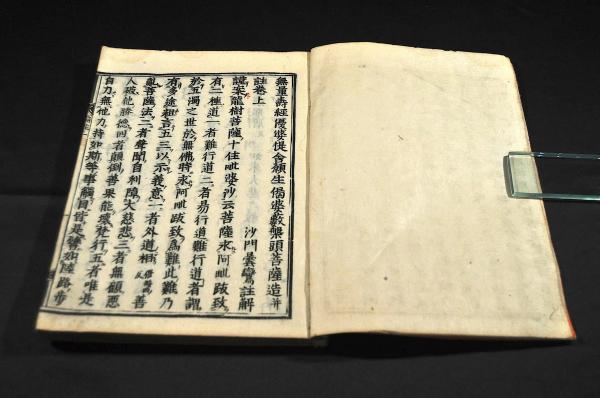 無量壽經優婆提舍願生偈婆藪槃頭菩薩造并
註卷上　沙門曇鸞註解
謹案龍樹菩薩十住毗婆沙云菩薩求阿毗跋致
有二種道一者難行道二者易行道難行道者謂
於五濁之世於無佛時求阿毗跋致爲難此難乃
有多途粗言五三以示義意一者外道相善
亂菩薩法二者聲聞自利障大慈悲三者無顧惡
人破他勝德四者顛倒善果能壞梵行五者唯是
自力無他力持如斯等事觸目皆是譬如陸路步